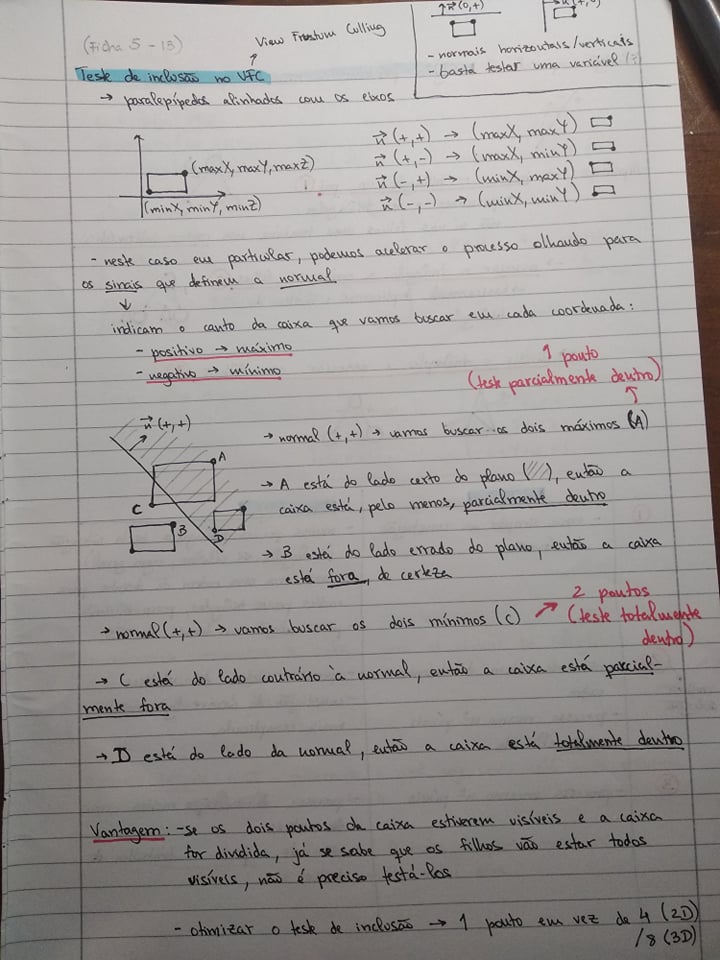 (Ficha 5 - 13)
View Frustum Culling
n(0,+)
- normais horizontais/verticais
- basta testar uma variável
Teste de inclusão no VFC
→ paralepípedos alinhados com os eixos
(maxX, maxY, maxZ)
(minX, minY, minZ)
n(+,+) → (maxX, maxY)
n(+,-) → (maxX, minY)
n(-,+) → (minX, maxY)
n(-,-) → (minX, minY)
- neste caso em particular, podemos acelerar o processo olhando para
os sinais que definem a normal
indicam o canto da caixa que vamos buscar em cada coordenada:
- positivo → máximo
- negativo → mínimo
1 ponto
(teste parcialmente dentro)
n(+,+)
A
C
B
D
→ normal (+,+) → vamos buscar os dois máximos (A)
→ A está do lado certo do plano (///), então a
caixa está, pelo menos, parcialmente dentro
→ B está do lado errado do plano, então a caixa
está fora, de certeza
→ normal (+,+) → vamos buscar os dois mínimos (C)
2 pontos
(teste totalmente
dentro)
→ C está do lado contrário à normal, então a caixa está parcial-
mente fora
→ D está do lado da normal, então a caixa está totalmente dentro
Vantagem: - se os dois pontos da caixa estiverem visíveis e a caixa
for dividida, já se sabe que os filhos vão estar todos
visíveis, não é preciso testá-los
- otimizar o teste de inclusão → 1 ponto em vez de 4 (2D)
/8 (3D)